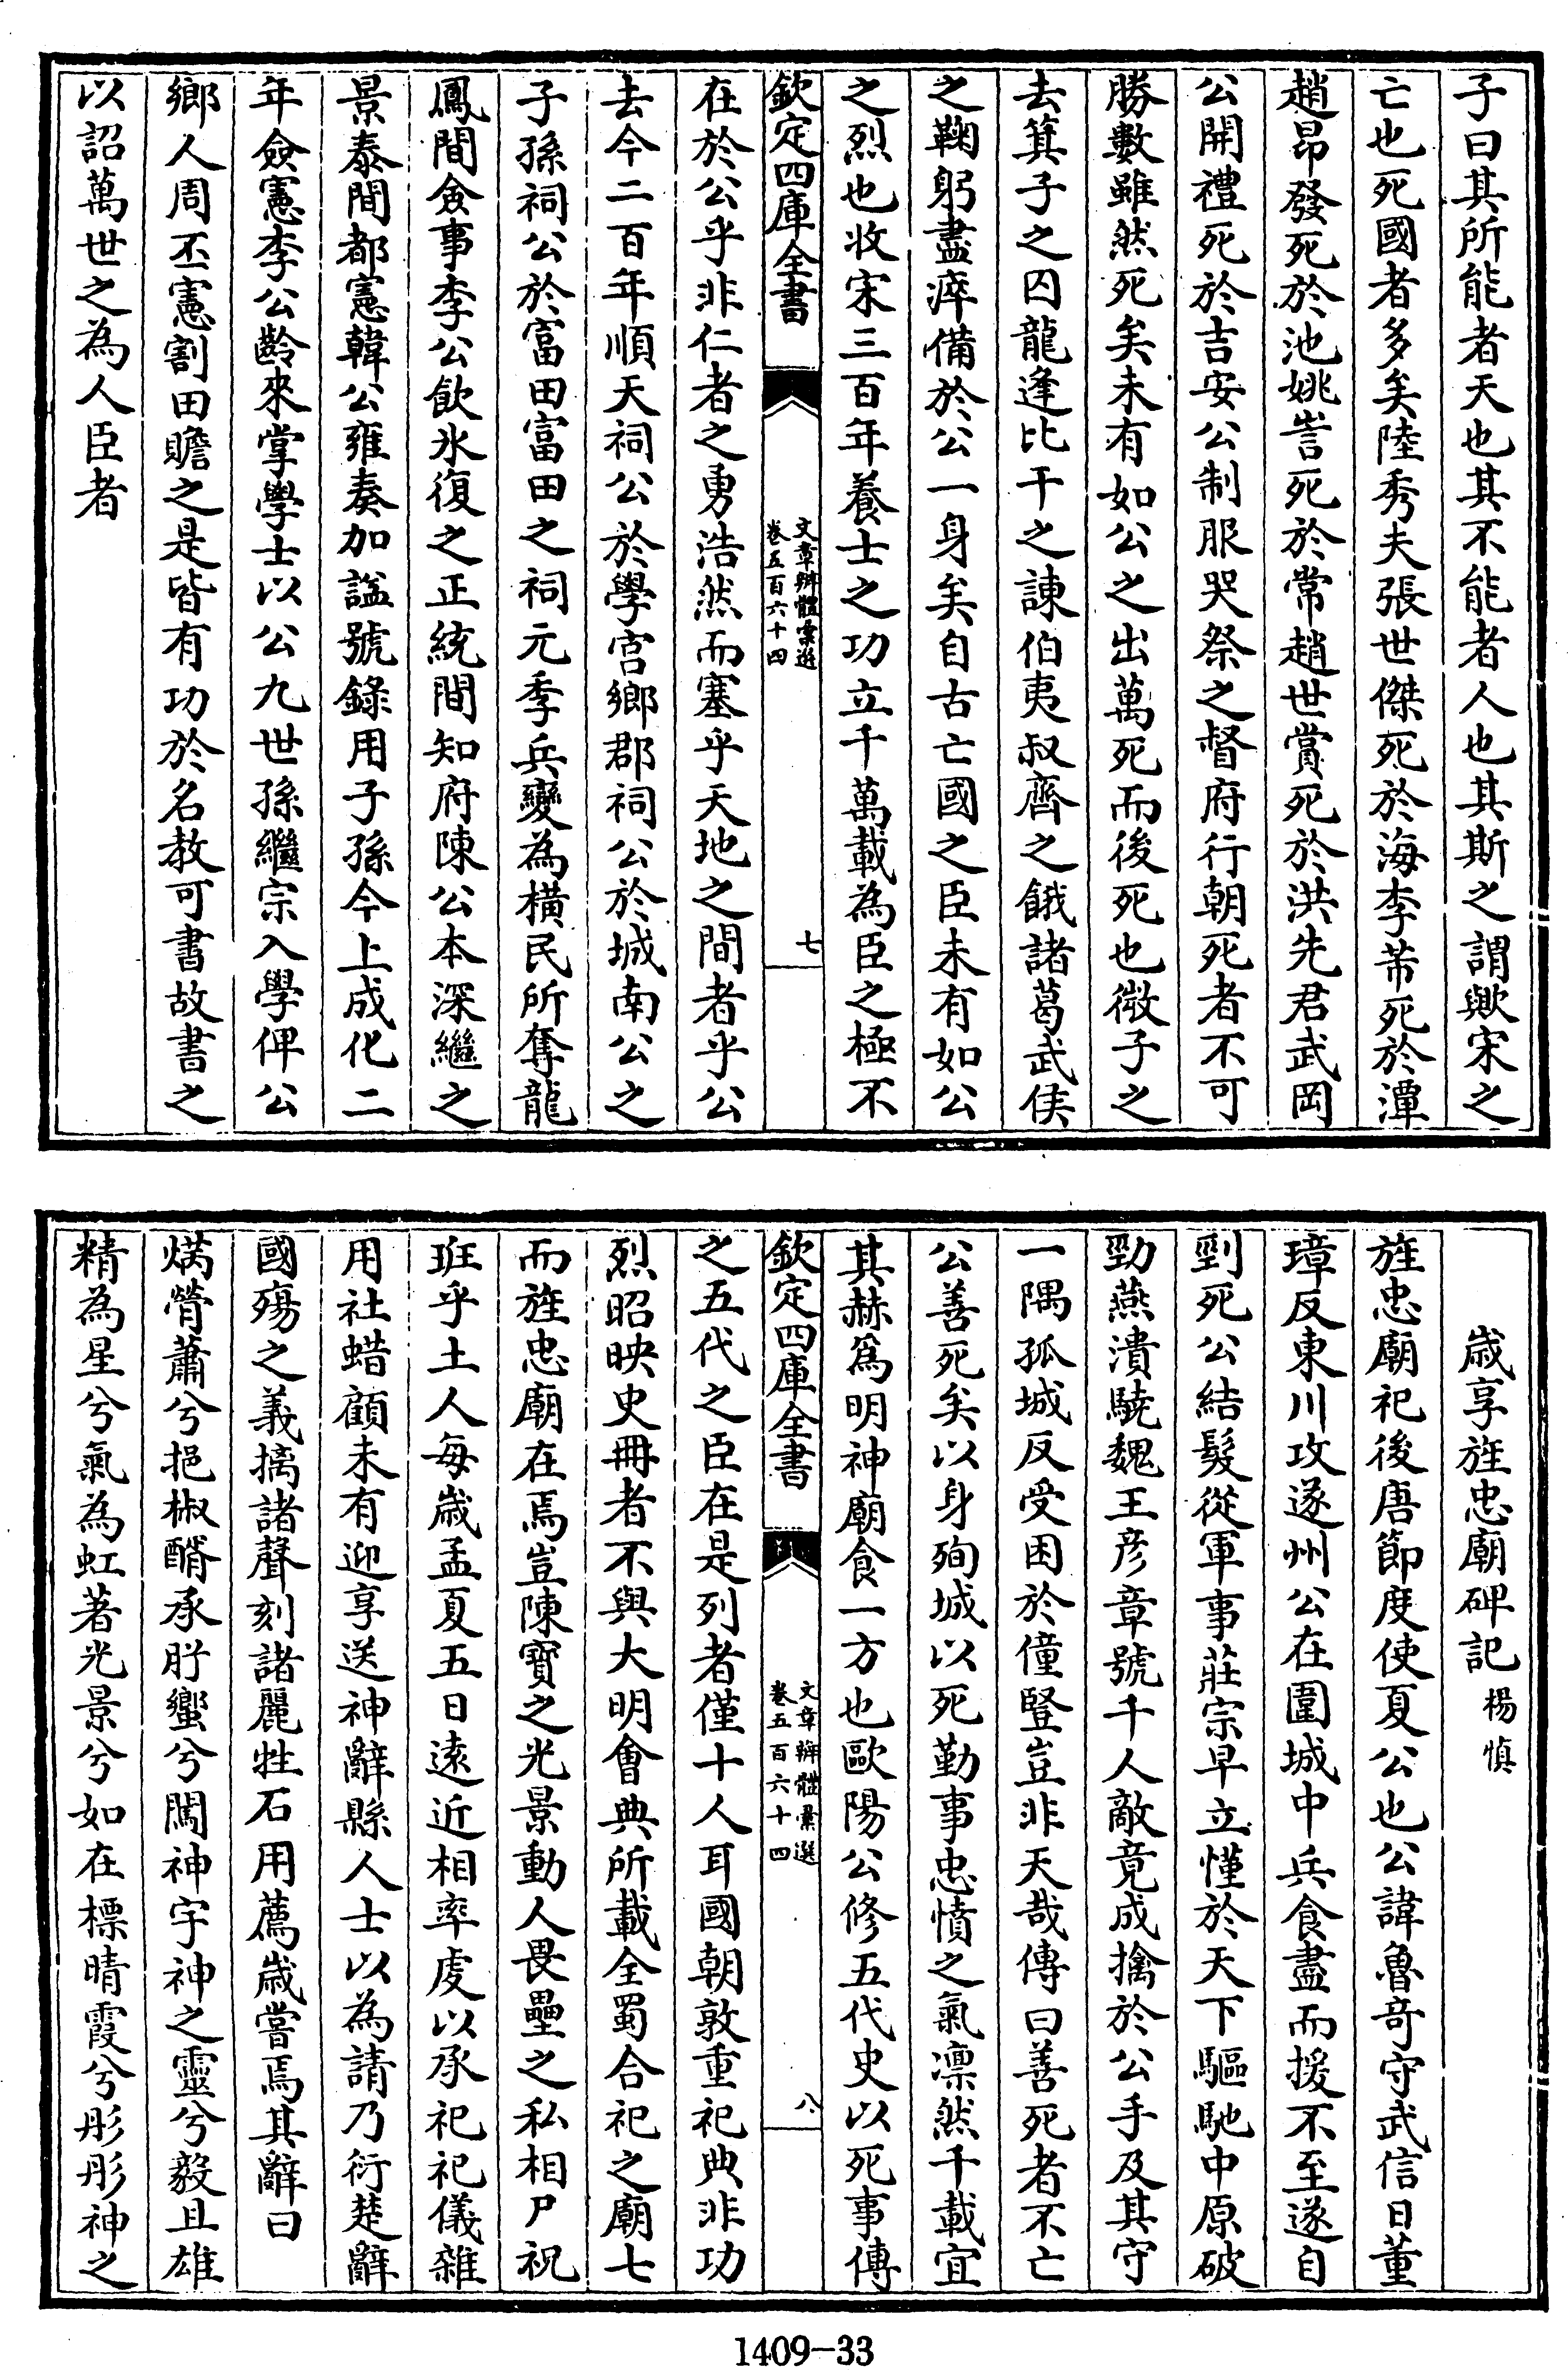 子曰其所能者天也其不能者人也其斯之謂歟宋之
亡也死國者多矣陸秀夫張世傑死於海李芾死於潭
趙昂發死於池姚訔死於常趙世賞死於洪先君武岡
公開禮死於吉安公制服哭祭之督府行朝死者不可
勝數雖然死矣未有如公之出萬死而後死也微子之
去箕子之囚龍逢比干之諫伯夷叔齊之餓諸葛武侯
之鞠躬盡瘁備於公一身矣自古亡國之臣未有如公
之烈也收宋三百年養士之功立千萬載為臣之極不
欽定四庫全書
文章辨體彙選
卷五百六十四
七
在於公乎非仁者之勇浩然而塞乎天地之間者乎公
去今二百年順天祠公於學宮鄉郡祠公於城南公之
子孫祠公於富田富田之祠元季兵變為橫民所奪龍
鳳間僉事李公飲氷復之正統間知府陳公本深繼之
景泰間都憲韓公雍奏加謚號錄用子孫今上成化二
年僉憲李公齡來掌學士以公九世孫繼宗入學俾公
鄉人周丕憲割田贍之是皆有功於名教可書故書之
以詔萬世之為人臣者
歲享旌忠廟碑記 楊慎
旌忠廟祀後唐節度使夏公也公諱魯奇守武信日董
璋反東川攻遂州公在圍城中兵食盡而援不至遂自
剄死公結髮從軍事莊宗早立慬於天下驅馳中原破
勁燕潰驍魏王彥章號千人敵竟成擒於公手及其守
一隅孤城反受困於僮豎豈非天哉傳曰善死者不亡
公善死矣以身殉城以死勤事忠憤之氣凛然千載宜
其赫為明神廟食一方也歐陽公修五代史以死事傳
欽定四庫全書
文章辨體彙選
卷五百六十四
八
之五代之臣在是列者僅十人耳國朝敦重祀典非功
烈昭映史冊者不與大明會典所載全蜀合祀之廟七
而旌忠廟在焉豈陳寶之光景動人畏壘之私相尸祝
班乎土人每歲孟夏五日遠近相率處以承祀祀儀雜
用社蜡顧未有迎享送神辭縣人士以為請乃衍楚辭
國殤之義摛諸聲刻諸麗牲石用薦歲嘗焉其辭曰
焫膋蕭兮挹椒醑承肸蠁兮闖神宇神之靈兮毅且雄
精為星兮氣為虹著光景兮如在標晴霞兮彤彤神之
1409-33